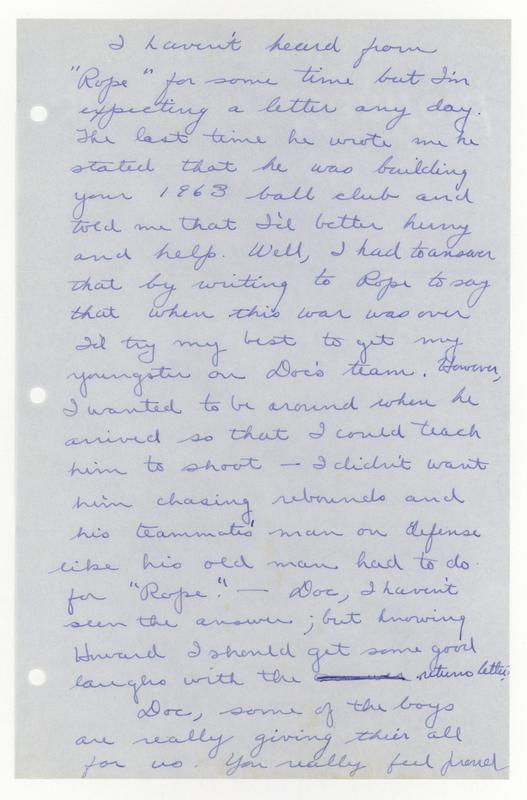 I haven't heard from
"Rope" for some time but I'm
expecting a letter any day.
The last time he wrote me he
stated that he was building
your 1963 ball club and
told me that I'd better hurry
and help. Well, I had to answer
that by writing to Rope to say
that when this war was over
I'd try my best to get my
youngster on Doc's team. However,
I wanted to be around when he
arrived so that I could teach
him to shoot — I didn't want
him chasing rebounds and
his teammates' man on defense
like his old man had to do
for "Rope". — Doc, I haven't
seen the answer; but knowing
Howard I should get some good
laughs with the return letter.
Doc, some of the boys
are really giving their all
for us. You really feel proud